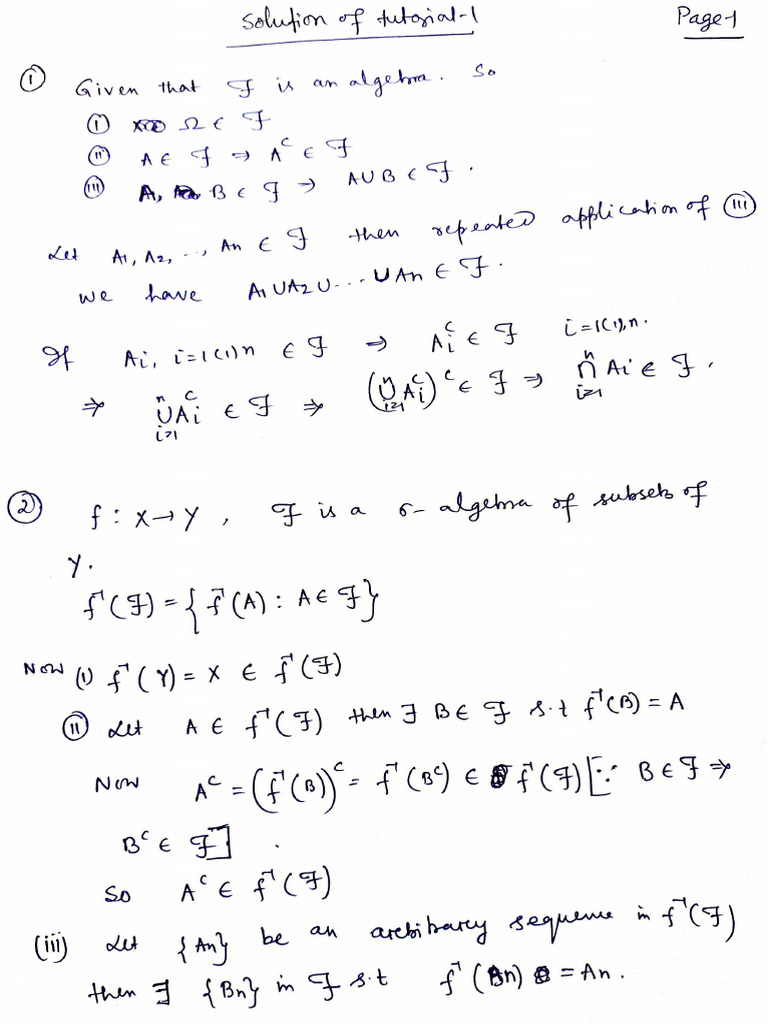 Solution of tutorial-1 Page-1
① Given that ℱ is an algebra. So
ⓘ Ω ∈ ℱ
ⓘⓘ A ∈ ℱ ⇒ Aᶜ ∈ ℱ
ⓘⓘⓘ A, B ∈ ℱ ⇒ A∪B ∈ ℱ.
Let A₁, A₂, .., An ∈ ℱ then repeated application of (iii)
we have A₁∪A₂∪...∪An ∈ ℱ.
If Ai, i=1(1)n ∈ ℱ ⇒ Aiᶜ ∈ ℱ i=1(1),n.
⇒ ⋃ⁿᵢ₌₁ Aiᶜ ∈ ℱ ⇒ (⋃ⁿᵢ₌₁ Aiᶜ)ᶜ ∈ ℱ ⇒ ⋂ⁿᵢ₌₁ Ai ∈ ℱ.
② f : X→Y, ℱ is a σ- algebra of subsets of
Y.
f⁻¹(ℱ) = {f⁻¹(A) : A ∈ ℱ}
Now (i) f⁻¹(Y) = X ∈ f⁻¹(ℱ)
(ii) Let A ∈ f⁻¹(ℱ) then ∃ B ∈ ℱ s.t f⁻¹(B) = A
Now Aᶜ = (f⁻¹(B))ᶜ = f⁻¹(Bᶜ) ∈ f⁻¹(ℱ) [∵ B ∈ ℱ ⇒
Bᶜ ∈ ℱ] .
So Aᶜ ∈ f⁻¹(ℱ)
(iii) Let {An} be an arbitrary sequence in f⁻¹(ℱ)
then ∃ {Bn} in ℱ s.t f⁻¹(Bn) = An.